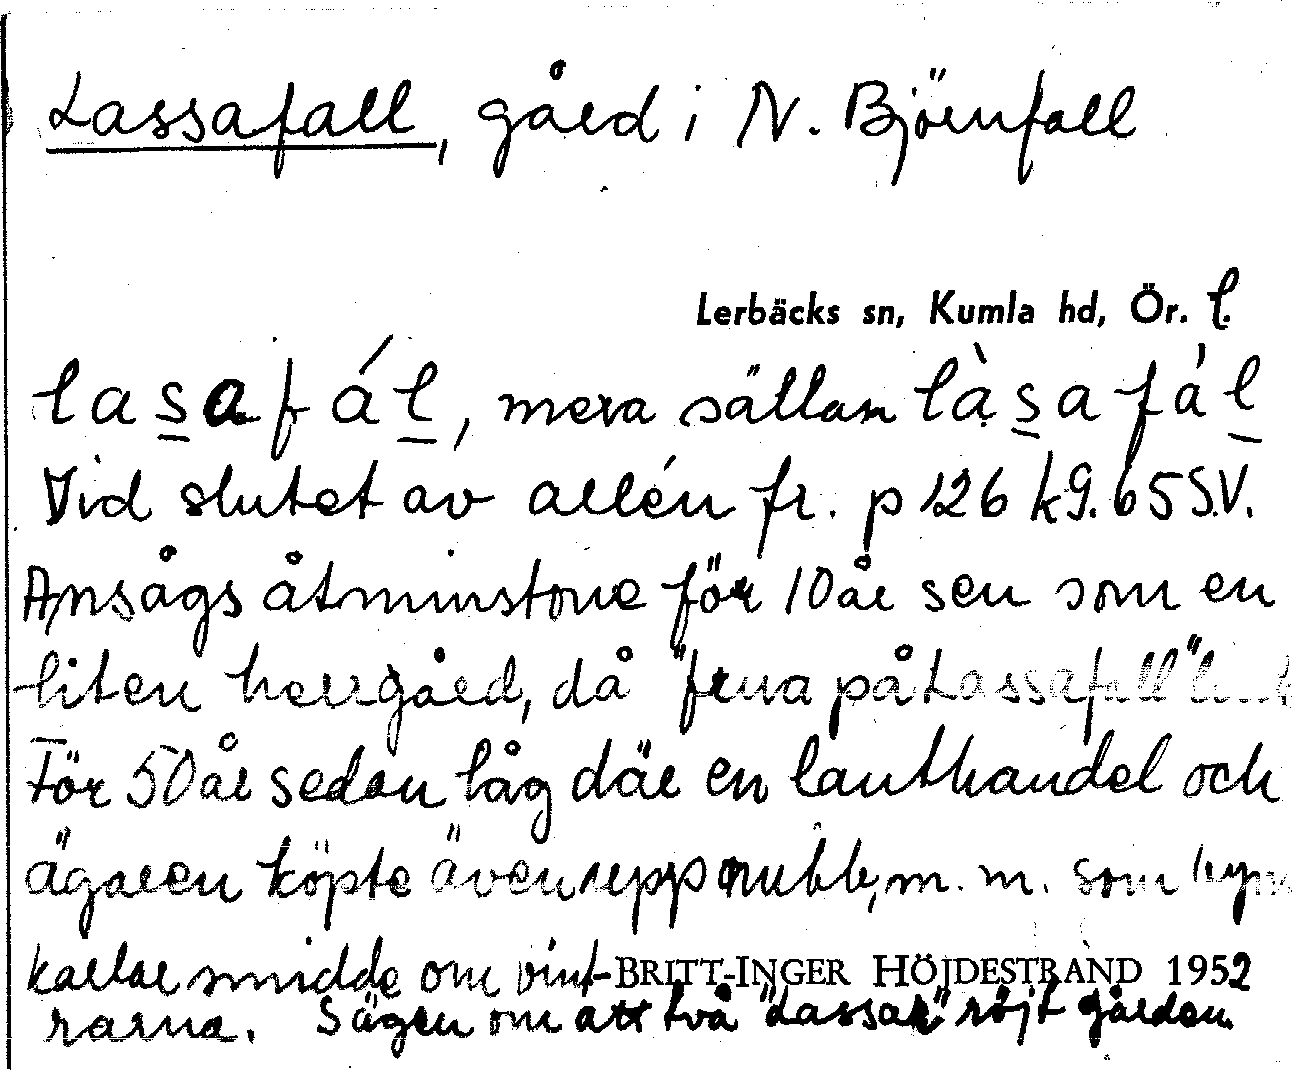 Lassafall, gård i N. Björnfall
Lerbäcks sn, Kumla hd, Ör. l.
lasafál, mera sällan làsafál
Vid slutet av allén fr. p 126 k9.65 S.V.
Ansågs åtminstone för 10 år sen som en
liten herrgård, då "frua på Lassafall"
För 50 år sedan låg där en lanthandel och
ägaren köpte även upp nubb, m. m. som
karlar smidde om vint-
BRITT-INGER HÖJDESTRAND 1952
rarna. Sägen om att två "Lassar" röjt gården.